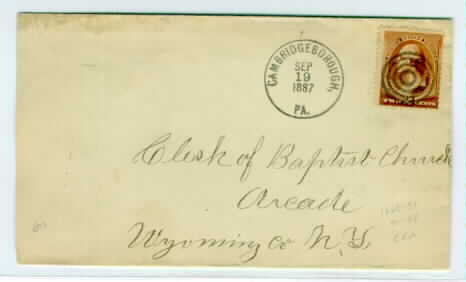 CAMBRIDGEBOROUGH,
SEP
19
1887
PA.
TWO CENTS
Clerk of Baptist Church
Arcade
Wyoming Co N.Y.